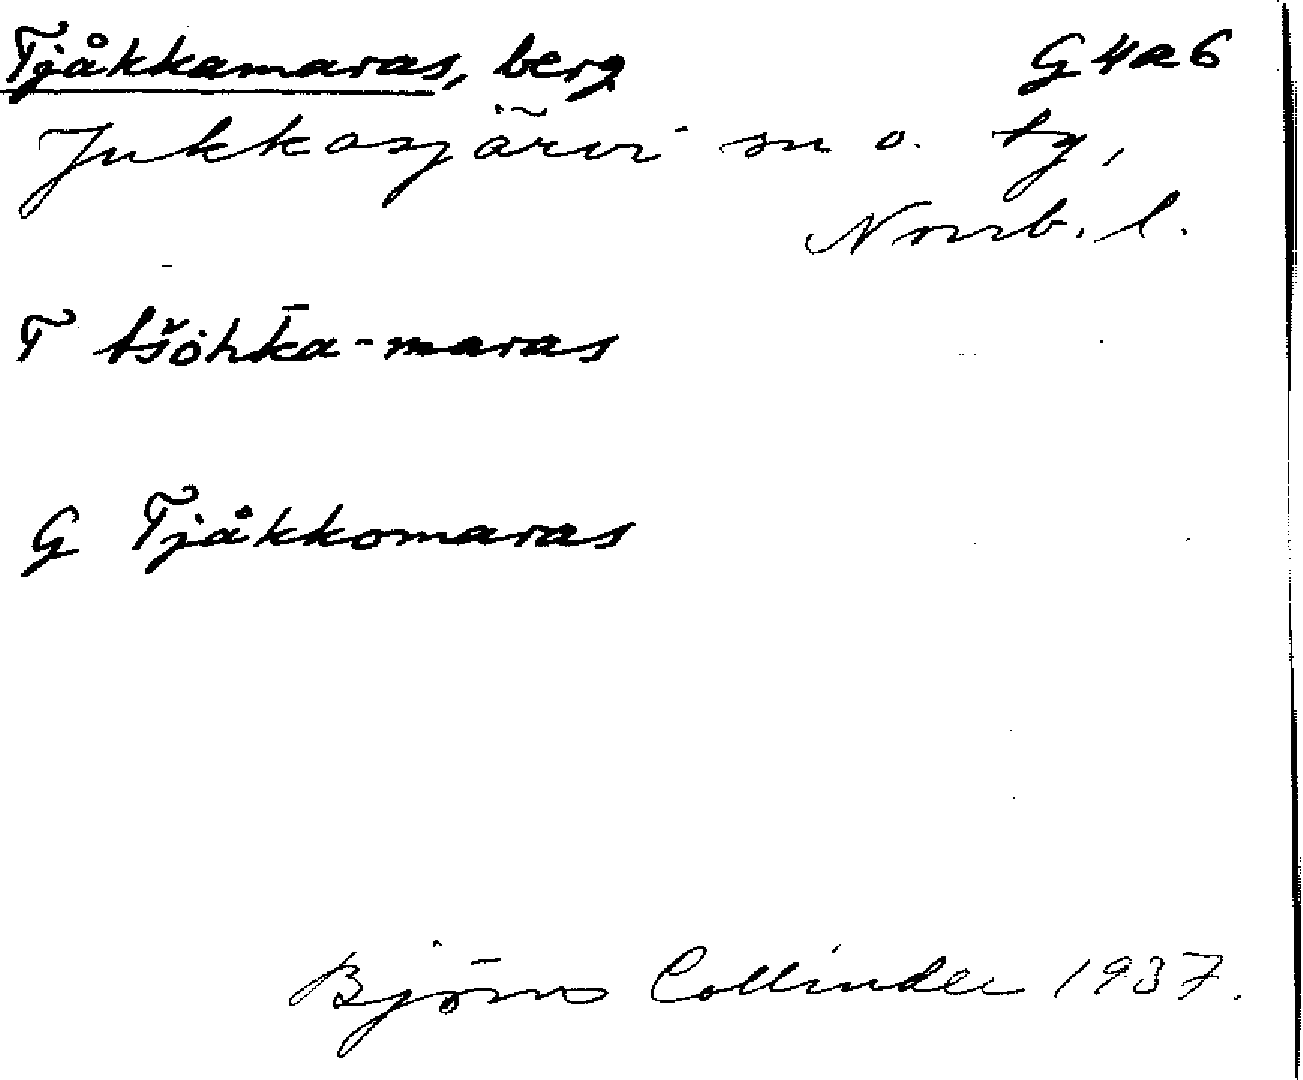 Tjåkkamaras, berg G4a6
Jukkasjärvi sn o. tg,
Norrb. l.
T tšȯhk̄a-maras
G Tjåkkomaras
Björn Collinder 1937.